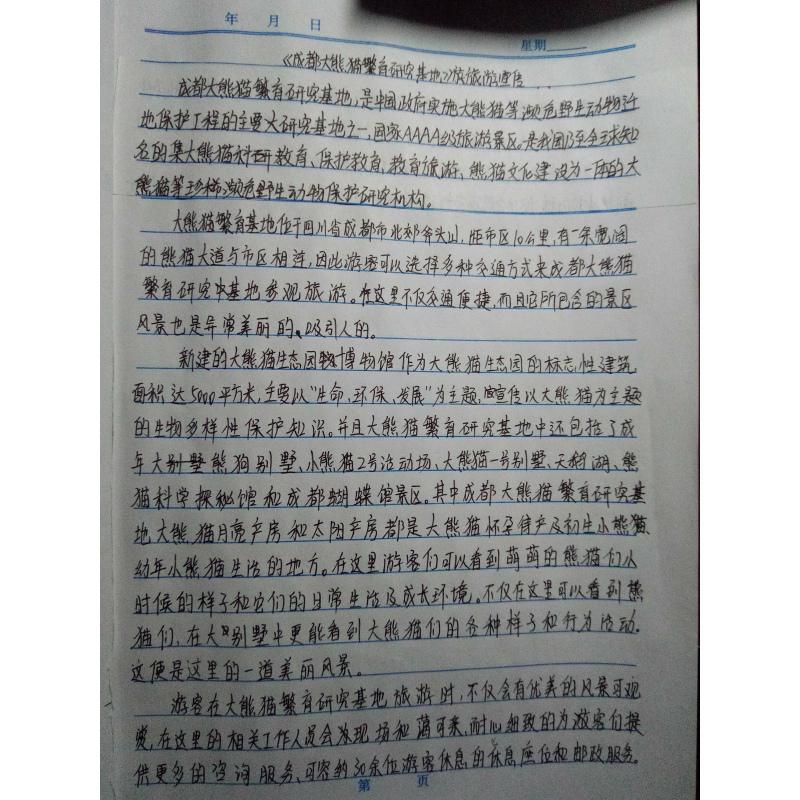 年 月 日
星期
《成都大熊猫繁育研究基地》旅旅游宣传
成都大熊猫繁育研究基地,是中国政府实施大熊猫等濒危野生动物迁
地保护工程的主要大研究基地之一,国家AAAA级旅游景区。是我国乃至全球知
名的集大熊猫科研教育、保护教育、教育旅游、熊猫文化建设为一体的大
熊猫等珍稀濒危野生动物保护研究机构。
大熊猫繁育基地位于四川省成都市北郊斧头山,距市区10公里,有一条宽阔
的熊猫大道与市区相连,因此游客可以选择多种交通方式来成都大熊猫
繁育研究中基地参观旅游。在这里不仅交通便捷,而且它所包含的景区
风景也是异常美丽的、吸引人的。
新建的大熊猫生态园博物馆作为大熊猫生态园的标志性建筑
面积达5000平方米,主要以“生命,环保,发展”为主题,宣传以大熊猫为主题
的生物多样性保护知识。并且大熊猫繁育研究基地中还包括了成
年大别墅熊狗别墅、小熊猫2号活动场、大熊猫一号别墅、天鹅湖、熊
猫科学探秘馆和成都蝴蝶馆景区。其中成都大熊猫繁育研究基
地大熊猫月亮产房和太阳产房都是大熊猫怀孕待产及初生小熊猫
幼年小熊猫生活的地方。在这里游客们可以看到萌萌的熊猫们小
时候的样子和它们的日常生活及成长环境。不仅在这里可以看到熊
猫们,在大别墅中更能看到大熊猫们的各种样子和行为活动。
这便是这里的一道美丽风景。
游客在大熊猫繁育研究基地旅游时,不仅会有优美的风景可观
赏,在这里的相关工作人员会发现场和蔼可亲,耐心细致的为游客们提
供更多的咨询服务、可容纳30余位游客休息的休息座位和邮政服务。
第 页